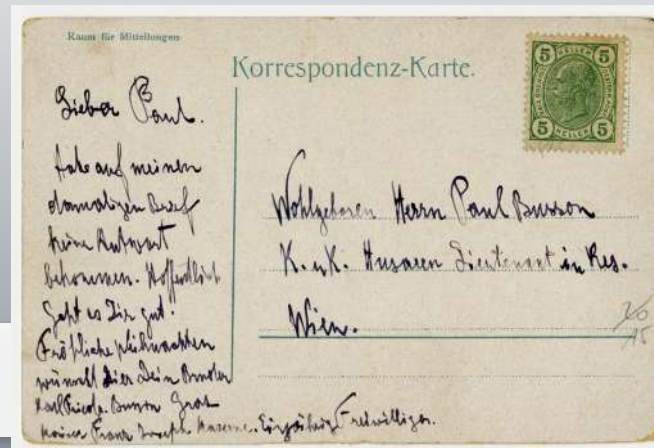 Raum für Mitteilungen
Korrespondenz-Karte.
5 HELLER 5
5 HELLER 5
Lieber Paul.
Habe auf meinen
damaligen Brief
keine Antwort
bekommen. Hoffentlich
geht es Dir gut.
Fröhliche Weihnachten
wünscht Dir Dein Bruder
Karl Busson Graz
Franz Joseph Kaserne. Einjährig Freiwilliger.
Wohlgeboren Herrn Paul Busson
K. u K. Husaren Lieutenant in Res.
Wien.
20
15